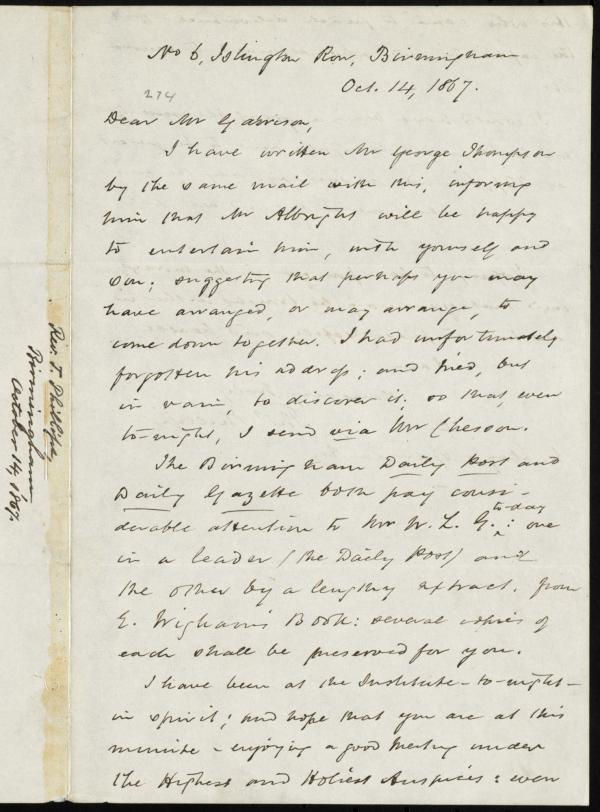 No 6, Islington Row, Birmingham
Oct. 14, 1867.
274
Dear Mr Garrison,
I have written Mr George Thompson
by the same mail with this, informing
him that Mr Albright will be happy
to entertain him, with yourself and
son; suggesting that perhaps you may
have arranged, or may arrange, to
come down together. I had unfortunately
forgotten his address; and tried, but
in vain, to discover it; so that, even
to-night, I send via Mr Chesson.
The Birmingham Daily Post and
Daily Gazette both pay consi-
derable attention to Mr W. L. G. to-day: one
in a leader (the Daily Post) and
the other by a lengthy extract, from
E. Wigham's Book: several copies of
each shall be preserved for you.
I have been at the Institute - to-night -
in spirit; and hope that you are at this
minute - enjoying a good Meeting under
the Highest and Holiest Auspices: even
Rev. T. Phillips,
Birmingham
October 14, 1867.